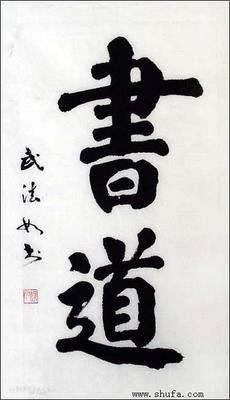 書道
武法必书
www.shufa.com